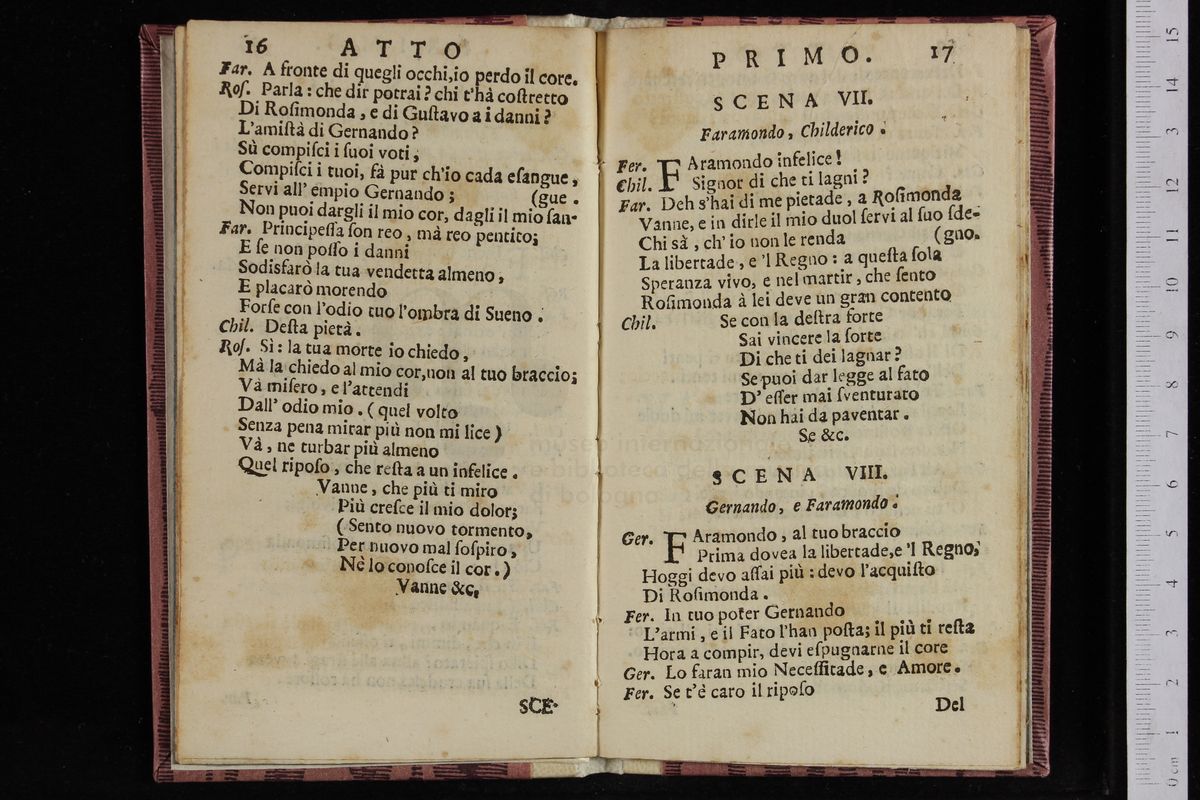 16 ATTO
Far. A fronte di quegli occhi, io perdo il core.
Roſ. Parla : che dir potrai ? chi t'hà coſtretto
Di Roſimonda , e di Guſtavo a i danni ?
L'amiſtà di Gernando ?
Sù compiſci i ſuoi voti ,
Compiſci i tuoi, fà pur ch'io cada eſangue ,
Servi all' empio Gernando ; (gue .
Non puoi dargli il mio cor, dagli il mio ſan-
Far. Principeſſa ſon reo , mà reo pentito;
E ſe non poſſo i danni
Sodisfarò la tua vendetta almeno ,
E placarò morendo
Forſe con l'odio tuo l'ombra di Sueno .
Chil. Deſta pietà .
Roſ. Sì : la tua morte io chiedo ,
Mà la chiedo al mio cor, non al tuo braccio;
Và miſero , e l'attendi
Dall' odio mio . ( quel volto
Senza pena mirar più non mi lice )
Và , ne turbar più almeno
Quel ripoſo , che reſta a un infelice .
Vanne , che più ti miro
Più creſce il mio dolor;
( Sento nuovo tormento,
Per nuovo mal ſoſpiro ,
Nè lo conoſce il cor . )
Vanne &c.
SCE-
PRIMO. 17
SCENA VII.
Faramondo, Childerico .
Fer. FAramondo infelice !
Chil. Signor di che ti lagni ?
Far. Deh s'hai di me pietade , a Roſimonda
Vanne, e in dirle il mio duol ſervi al ſuo ſde-
Chi sà , ch' io non le renda (gno.
La libertade , e 'l Regno : a queſta ſola
Speranza vivo, e nel martir , che ſento
Roſimonda à lei deve un gran contento
Chil. Se con la deſtra forte
Sai vincere la ſorte
Di che ti dei lagnar ?
Se puoi dar legge al fato
D' eſſer mai ſventurato
Non hai da paventar .
Se &c.
SCENA VIII.
Gernando, e Faramondo .
Ger. FAramondo , al tuo braccio
Prima dovea la libertade, e 'l Regno,
Hoggi devo aſſai più : devo l'acquiſto
Di Roſimonda .
Fer. In tuo poter Gernando
L'armi , e il Fato l'han poſta; il più ti reſta
Hora a compir, devi eſpugnarne il core
Ger. Lo faran mio Neceſſitade , e Amore.
Fer. Se t'è caro il ripoſo
Del